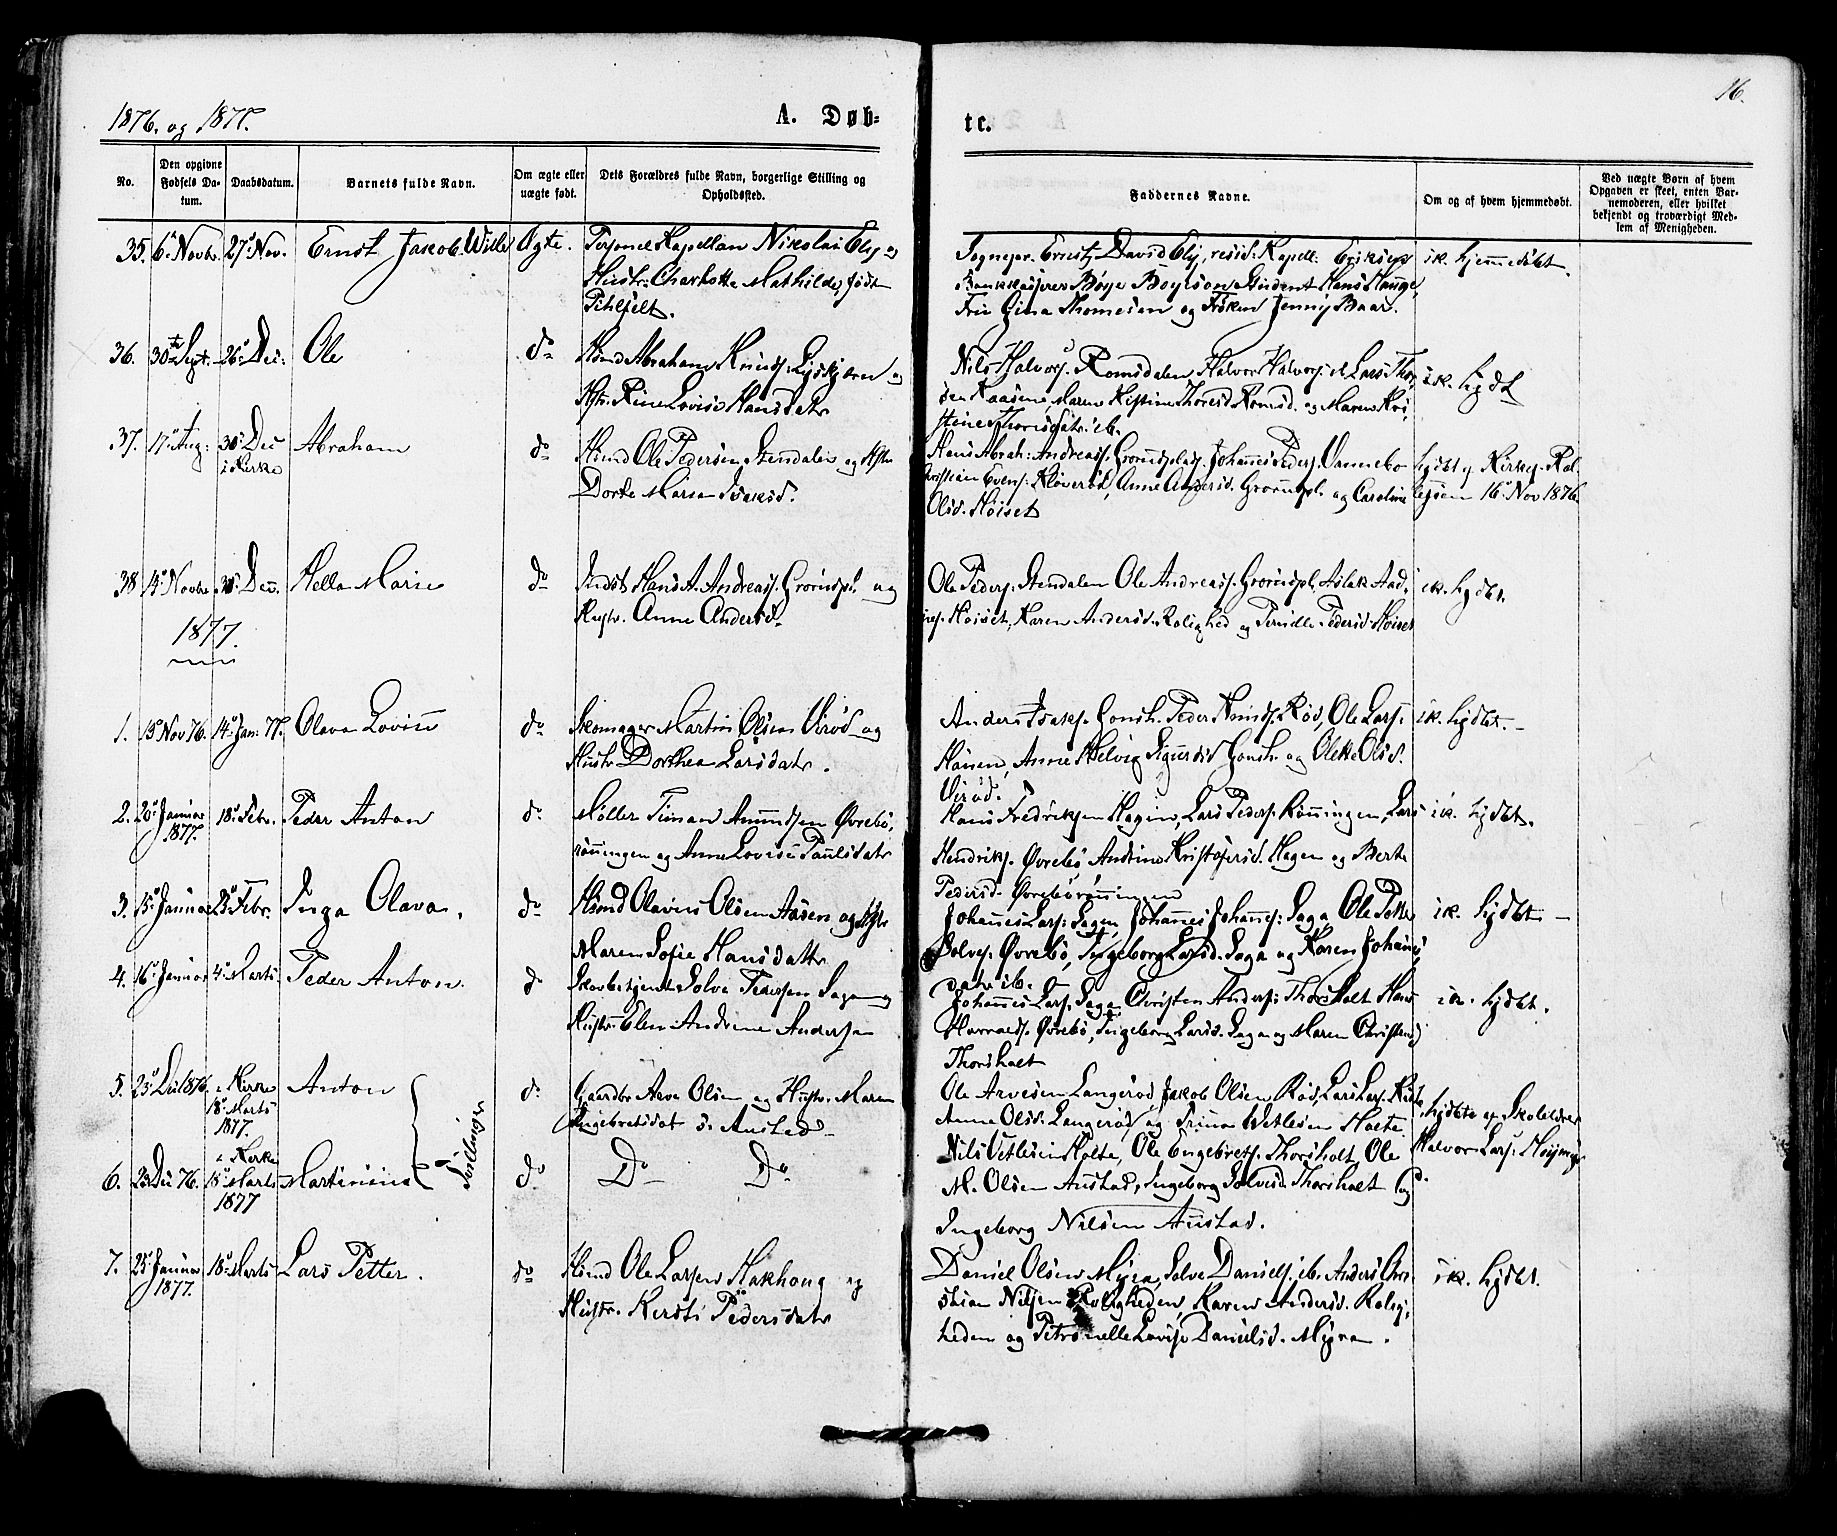 16.
1876. og 1877.
A. Døb-
te.
No.
Den opgivne Fødsels Da-tum.
Daabsdatum.
Barnets fulde Navn.
Om ægte eller uægte født.
Dets Forældres fulde Navn, borgerlige Stilling og Opholdssted.
Faddernes Navne.
Om og af hvem hjemmedøbt.
Ved uægte Børn af hvem Opgaven er skeet, enten Bar-nemoderen, eller hvilket bekjendt og troværdigt Med-lem af Menigheden.
35. 6te Novbr. 27de Nov. Ernst Jakob Wille Ægte. Personel Kapellan Nikolai Ely og
Hustr. Charlotte Mathilde, født
Pihlfelt.
Sognepr. Ernst David Ely, resid. Kapell. Eriksen
Bankkasserer Børge Boyesen Student Hans Hauge,
Frü Gina Thomesen og Frøken Jenny Baar.
ik. hjemmedøbt.
36. 30te Sept. 26de Dec. Ole do
Hsmd Abraham Knuds. Lyskjæren og
Hstr. Rine Lovise Hansdatr
Nils Halvors. Romsdalen Halvor Halvors. ib. Lars Thor
sen Kaasene, Maren Kistine Thoresd. Romsd. og Maren Kri
stine Thorsdatr. ib.
ik. hjdbt
37. 17de Aug. 30te Dec i Kirke Abraham do
Hsmd Ole Pedersen Stendalen og Hstr
Dorte Maria Isaksd.
Hans Abrah. Andreass. Grorudsplads, Johannes Peders. Vannebo
Kristian Evens. Kløverød, Anne Andersd. Grorudpl. og Caroline
Olsd. Høiset
hjdbt af Kirkes. Rol
lefsen 16de Nov 1876.
38. 14de Novbr. 30te Dec. Hella Marie do
Indst. Hans A. Andreass. Grorudspl. og
Hustr. Anne Andersd.
Ole Peders. Stendalen Ole Andreass. Grorudspl. Aslak Aad
nes. Høiset, Karen Andersd. Rolighed og Pernille Pedersd. Høiset
ik. hjdbt.
1877.
1. 19de Nov 76. 14de Jan. 77. Olava Lovise do
Skomager Martin Olsen Virød og
Hustr Dorthea Larsdatr.
Anders Isaks. Gonsh. Peder Knuds. Rød, Ole Lars.
Hanen, Anne Helvig Sigurdsd Gonsh. og Olette Olsd.
Virød.
ik. hjdbt.
2. 20de Januar 1877. 18de Febr. Peder Anton do
Møller Timan Amundsen Øvrebø,
rønningen og Anne Lovise Paulsdatr
Hans Fredriksen Hagen, Lars Peders. Rønningen, Lars
Hendriks. Øvrebø, Andrine Kristofersd. Hagen og Berte
Pedersd. Øvrebørønningen
ik. hjdbt.
3. 15de Januar 25de Febr. Inga Olava. do
Hsmd Olavus Olsen Aasen og Hstr
Maren Sofie Hansdattr
Johannes Lars. Saga, Johannes Johannes. Saga Ole Petter
Solves. Øvrebø, Ingeborg Larsd. Saga og Karen Johannes
datr. ib.
ik. hjdbt.
4. 16de Januar 4de Marts Peder Anton. do
Skovbetjent Solve Pedersen Saga og
Hustr. Elen Andrine Andersen
Johannes Lars. Saga Christen Anders. Thorsholt Hans
Harralds. Øvrebø, Ingeborg Larsd. Saga og Maren Christensd
Thorsholt
ik. hjdbt.
5. 23de Dec 1876. i Kirke 18de Marts 1877. Anton do
Gaardbr Arve Olsen og Hustr. Maren
Engebretsdat. s. Austad
Ole Arvesen Langerød Jakob Olsen Rød, Lars Lars.
Anne Olsd. Langerød og Trine Vetlesen Holte
hjdbte af Skolelærer
Halvor Lars.
Tvillinger
6. 23 Dec 76. i Kirke 18de Marts 1877 Martinius do
Do Do
Nils Vetlesen Holte, Ole Engebrets. Thorsholt, Ole
M. Olsen Austad, Ingeborg Solvesd. Thorsholt og
Ingeborg Nilsen Austad.
do
7. 25de Januar 1877. 18de Marts Lars Petter. do
Hsmd Ole Larsen Hakhaug og
Hustr. Kersti Pedersdatr
Daniel Olsen Myra, Solve Daniels. ib. Anders Chri
stian Nilsen Roligheden, Karen Andersd. Rolig,
heden og Petronelle Lovise Danielsd. Myra.
ik. hjdbt.